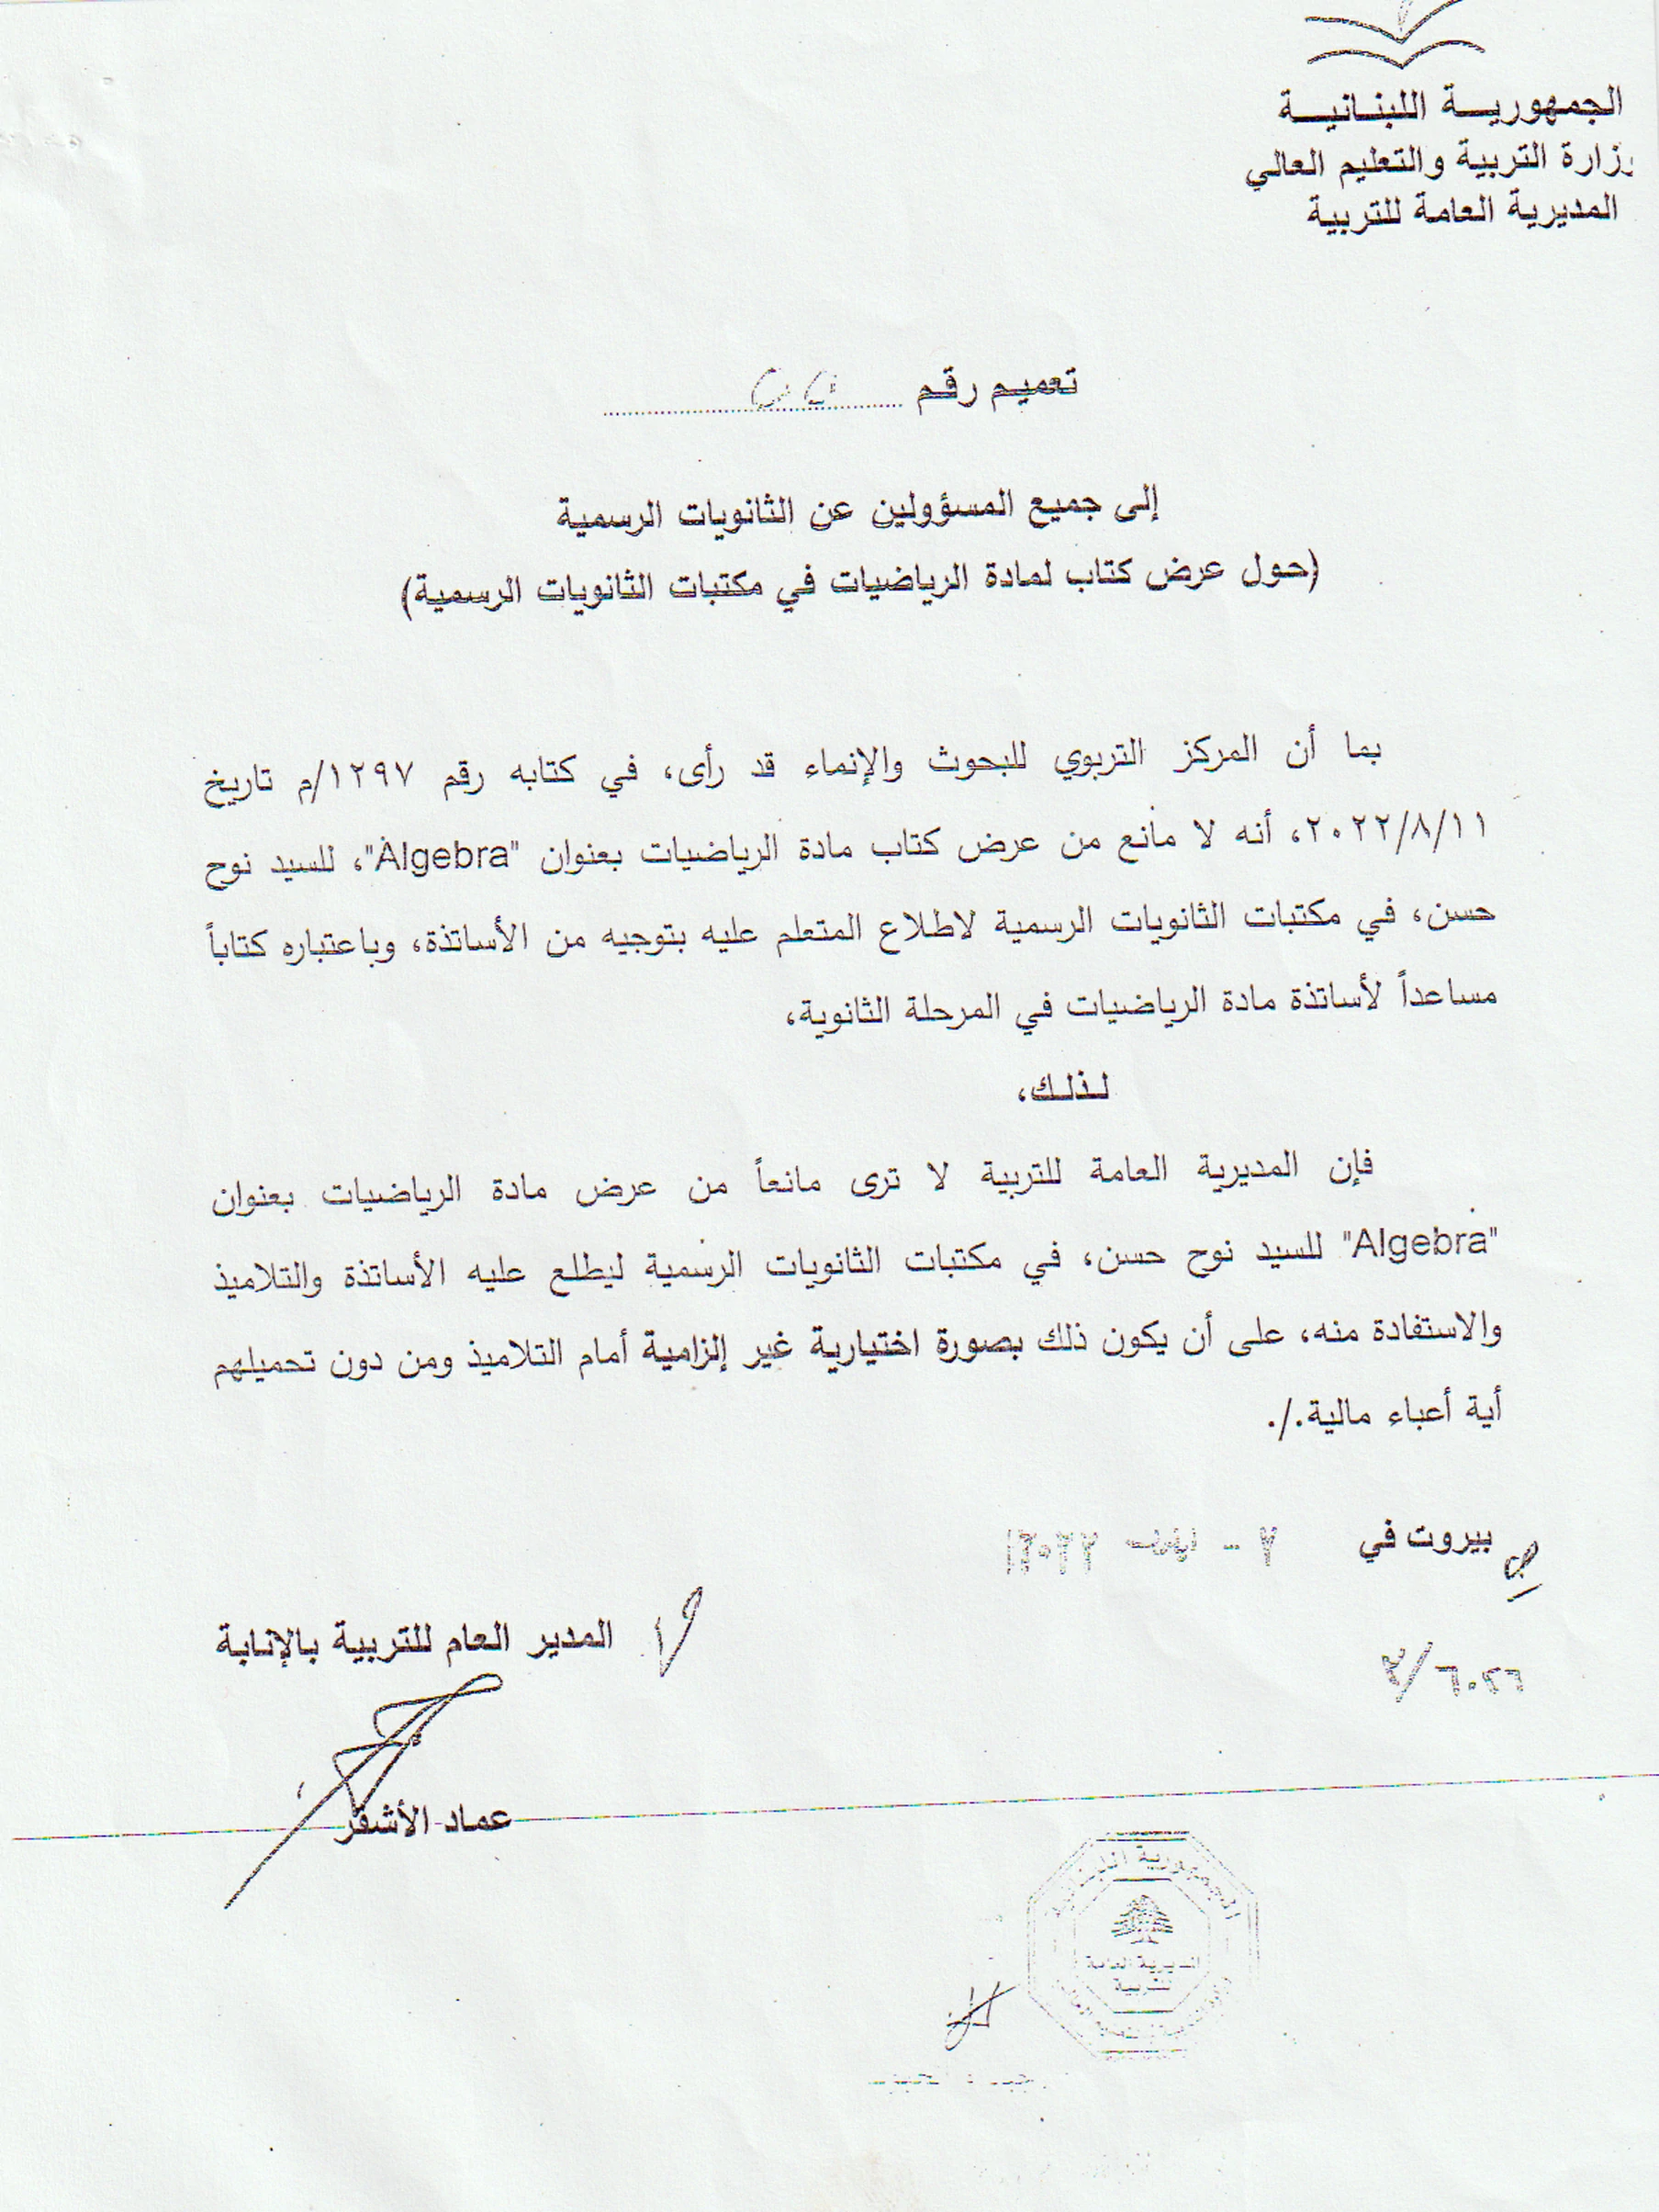 الجمهوريـــة اللبنـانيـــة
وزارة التربية والتعليم العالي
المديرية العامة للتربية
تعميم رقم
إلى جميع المسؤولين عن الثانويات الرسمية
(حول عرض كتاب لمادة الرياضيات في مكتبات الثانويات الرسمية)
بما أن المركز التربوي للبحوث والإنماء قد رأى، في كتابه رقم ١٢٩٧/م تاريخ
٢٠٢٢/٨/١١، أنه لا مانع من عرض كتاب مادة الرياضيات بعنوان "Algebra"، للسيد نوح
حسن، في مكتبات الثانويات الرسمية لاطلاع المتعلم عليه بتوجيه من الأساتذة، وباعتباره كتاباً
مساعداً لأساتذة مادة الرياضيات في المرحلة الثانوية،
لـذلـك،
فإن المديرية العامة للتربية لا ترى مانعاً من عرض مادة الرياضيات بعنوان
"Algebra" للسيد نوح حسن، في مكتبات الثانويات الرسمية ليطلع عليه الأساتذة والتلاميذ
والاستفادة منه، على أن يكون ذلك بصورة اختيارية غير إلزامية أمام التلاميذ ومن دون تحميلهم
أية أعباء مالية./.
بيروت في
المدير العام للتربية بالإنابة
عماد الأشقر
الجمهورية اللبنانية
المديرية العامة
للتربية